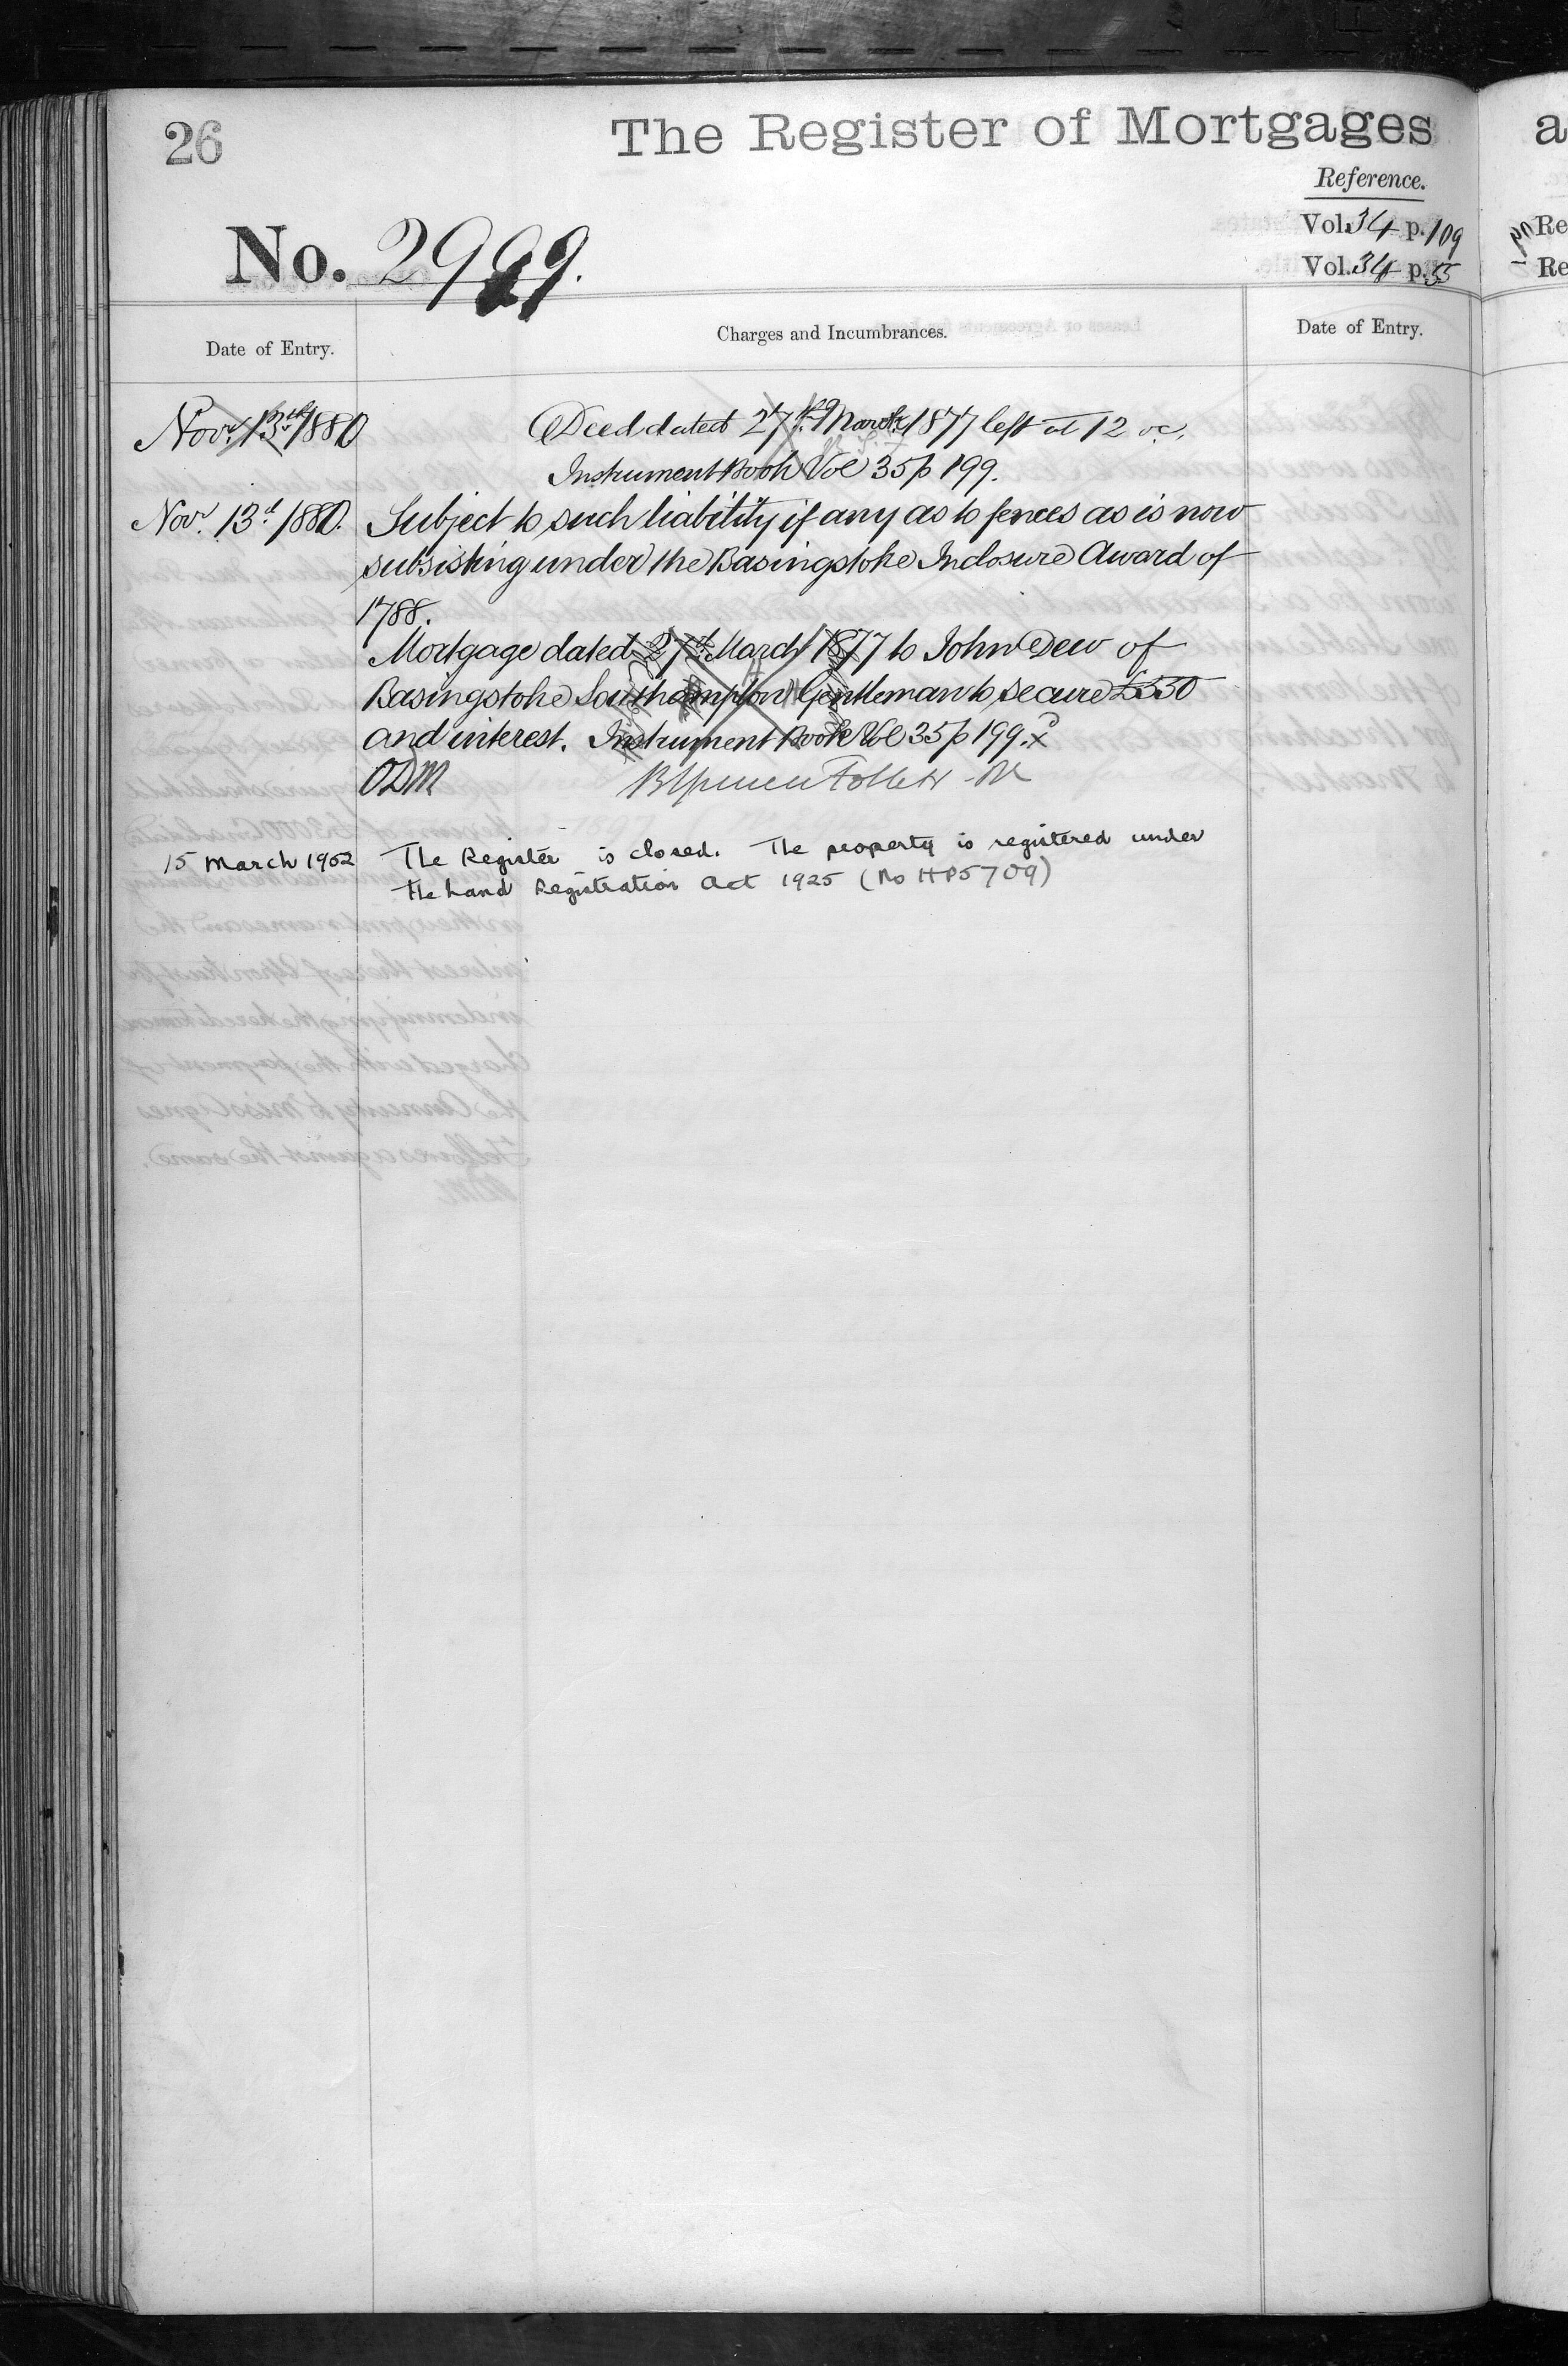 26
The Register of Mortgages
Reference.
Vol. 34 p. 109
Vol. 34 p. 55
No. 2999.
Date of Entry.
Charges and Incumbrances.
Date of Entry.
Novr. 13th 1880
Deed dated 27th March 1877 left at 12 oc.
Instrument Book Vol 35 p 199.
Novr. 13th 1880.
Subject to such liability if any as to fences as is now
subsisting under the Basingstoke Inclosure Award of
1788.
Mortgage dated 27th March 1877 to John Dew of
Basingstoke Southampton Gentleman to secure £550
and interest. Instrument Book Vol 35 p 199. x
ODM
15 March 1952
The Register is closed. The property is registered under
the Land Registration Act 1925 (No HP5709)
a
Re
Re